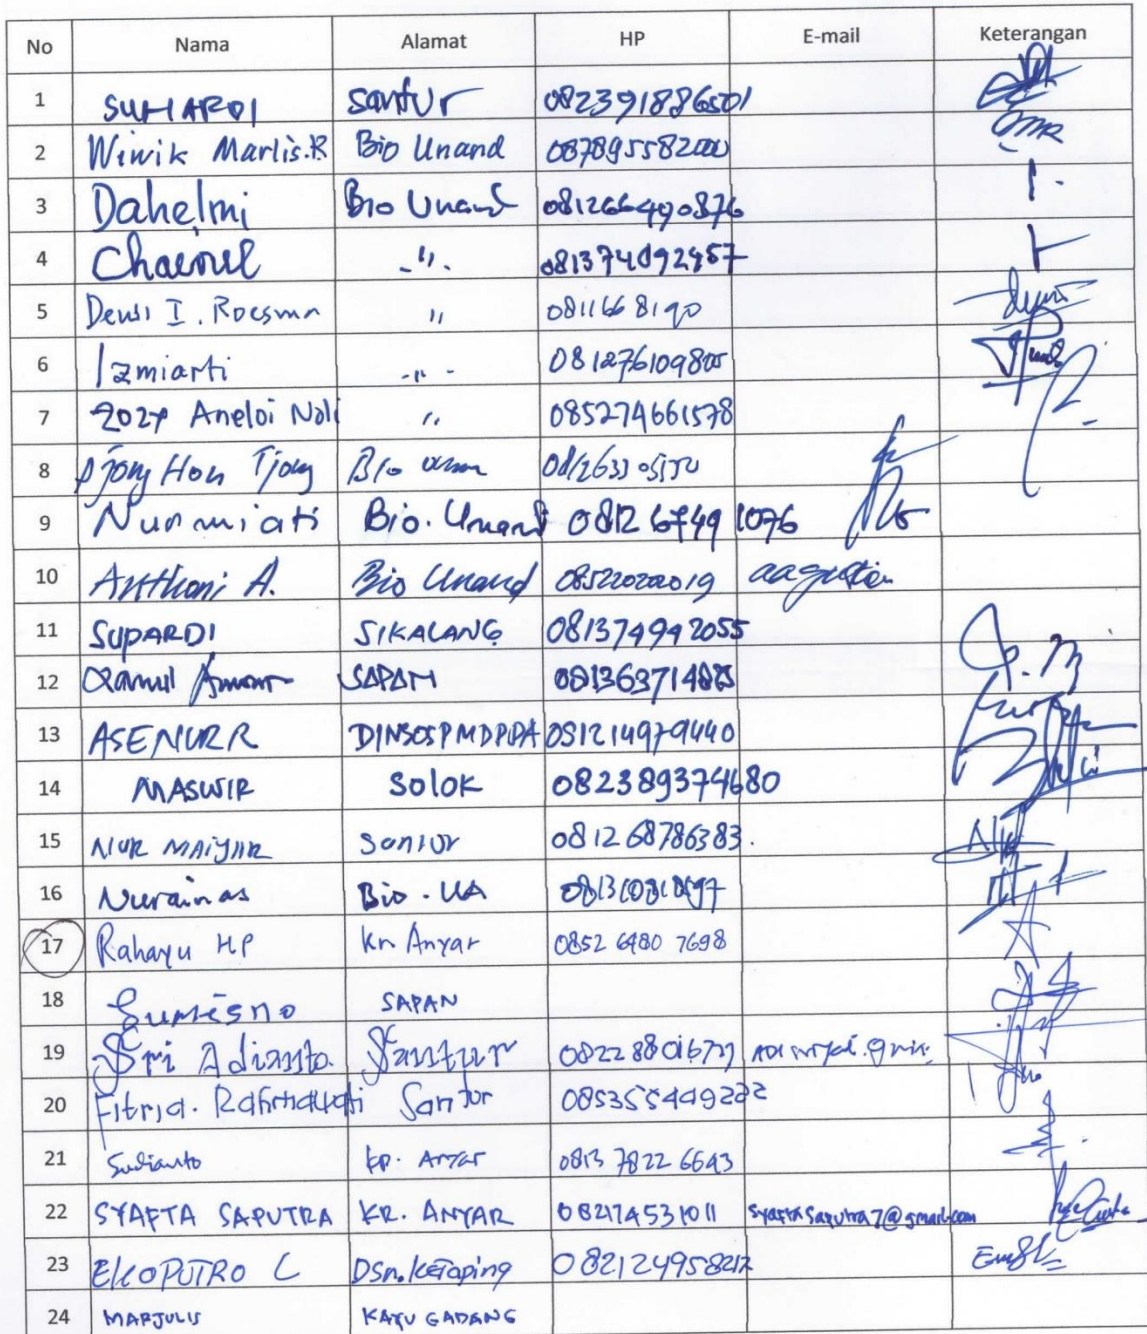 No Nama Alamat HP E-mail Keterangan
1 SUHARDI santur 082391886501
2 Wiwik Marlis.R Bio Unand 087895582000
3 Dahelmi Bio Unand 081266490876
4 Chairul -"- 081374092957
5 Dewi I. Roesma " 0811668190
6 Izmiarti -"-
7 Aneloi Noli " 085274661578
8 Djong Hon Tjong Bio
9 Nurmiati Bio. Unand 0812 6749 1076
10 Anthoni A. Bio Unand 085220200019
11 SUPARDI SIKALANG 081374942055
12 SAPAN
13 ASENUR R DINSOSPMDPPA 081214979440
14 MASWIR Solok 082389374680
15 NUR Santur 081268786383.
16 Nurainas Bio. UA
17 Rahayu HP Kr Anyar 0852 6480 7698
18 Sumisno SAPAN
19 Sri Adianto. Santur
20 Fitria. Rahmawati Santur 085355449222
21 Sudianto kp. Anyar 0813 7822 6643
22 SYAFTA SAPUTRA KR. ANYAR 082174531011 syaftasaputra7@gmail.com
23 EKOPUTRO C Dsn.Ketaping 082124958212
24 MARJULIS KAYU GADANG